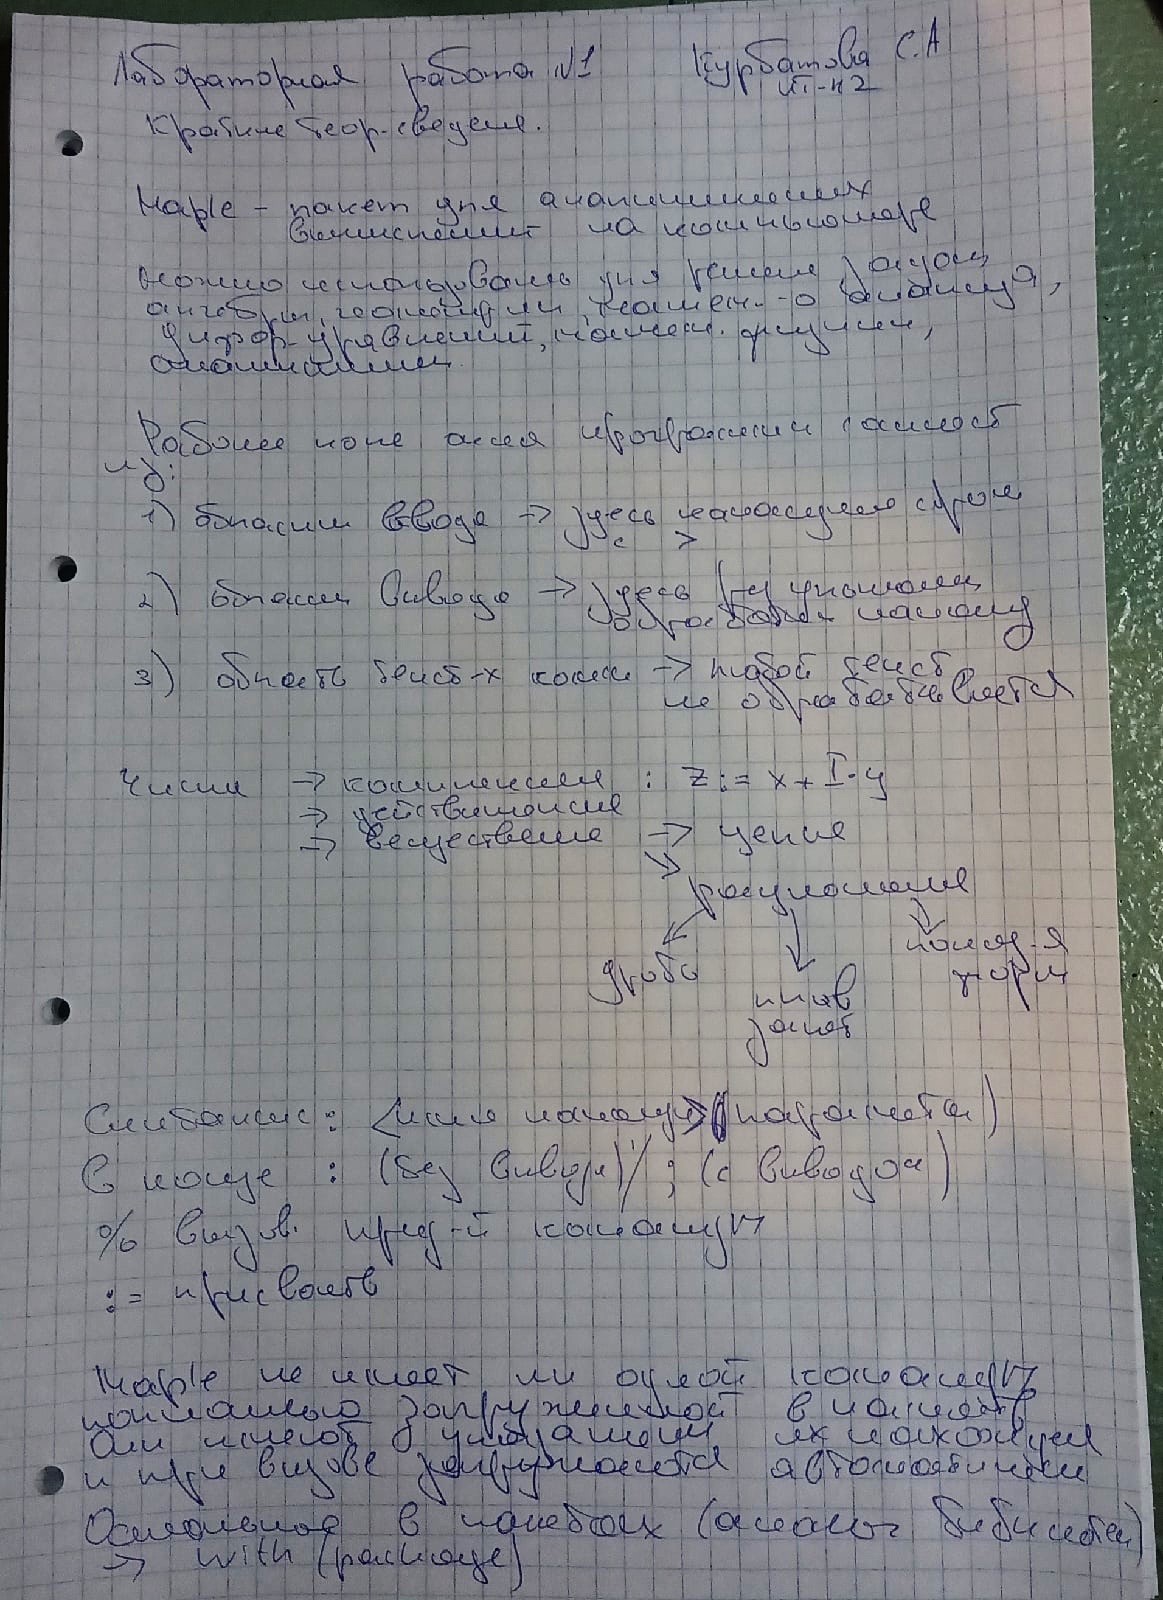 Лабораторная работа №1 Курбатова С.А
ИТ-42
Краткие теор. сведения.
Maple - пакет для аналитических
вычислений на компьютере
Можно использовать для решения задач
алгебры, геометрии, матем.-го анализа,
диффер-уравнений,
Рабочее поле окна программы состоит
из:
1) области ввода → здесь командные строки
с >
2) область вывода → здесь
обработки команд
3) область текст-х комм → любой текст
не обрабатывается
Числа → комплексные : z:= x + I·y
→ действительные
→ вещественные → целые
рациональные
дробь
показ-я
форм
плав
запят
Синтаксис: <имя команды> (параметры)
В конце : (без вывода) / ; (с выводом)
% вызов пред-й команды
:= присвоить
Maple не имеет ни одной команды
постоянно загруженной в память
Они имеют их нахождения
и при вызове загружаются автоматически
Остальное в пакетах (аналог библиотек)
→ with (package)